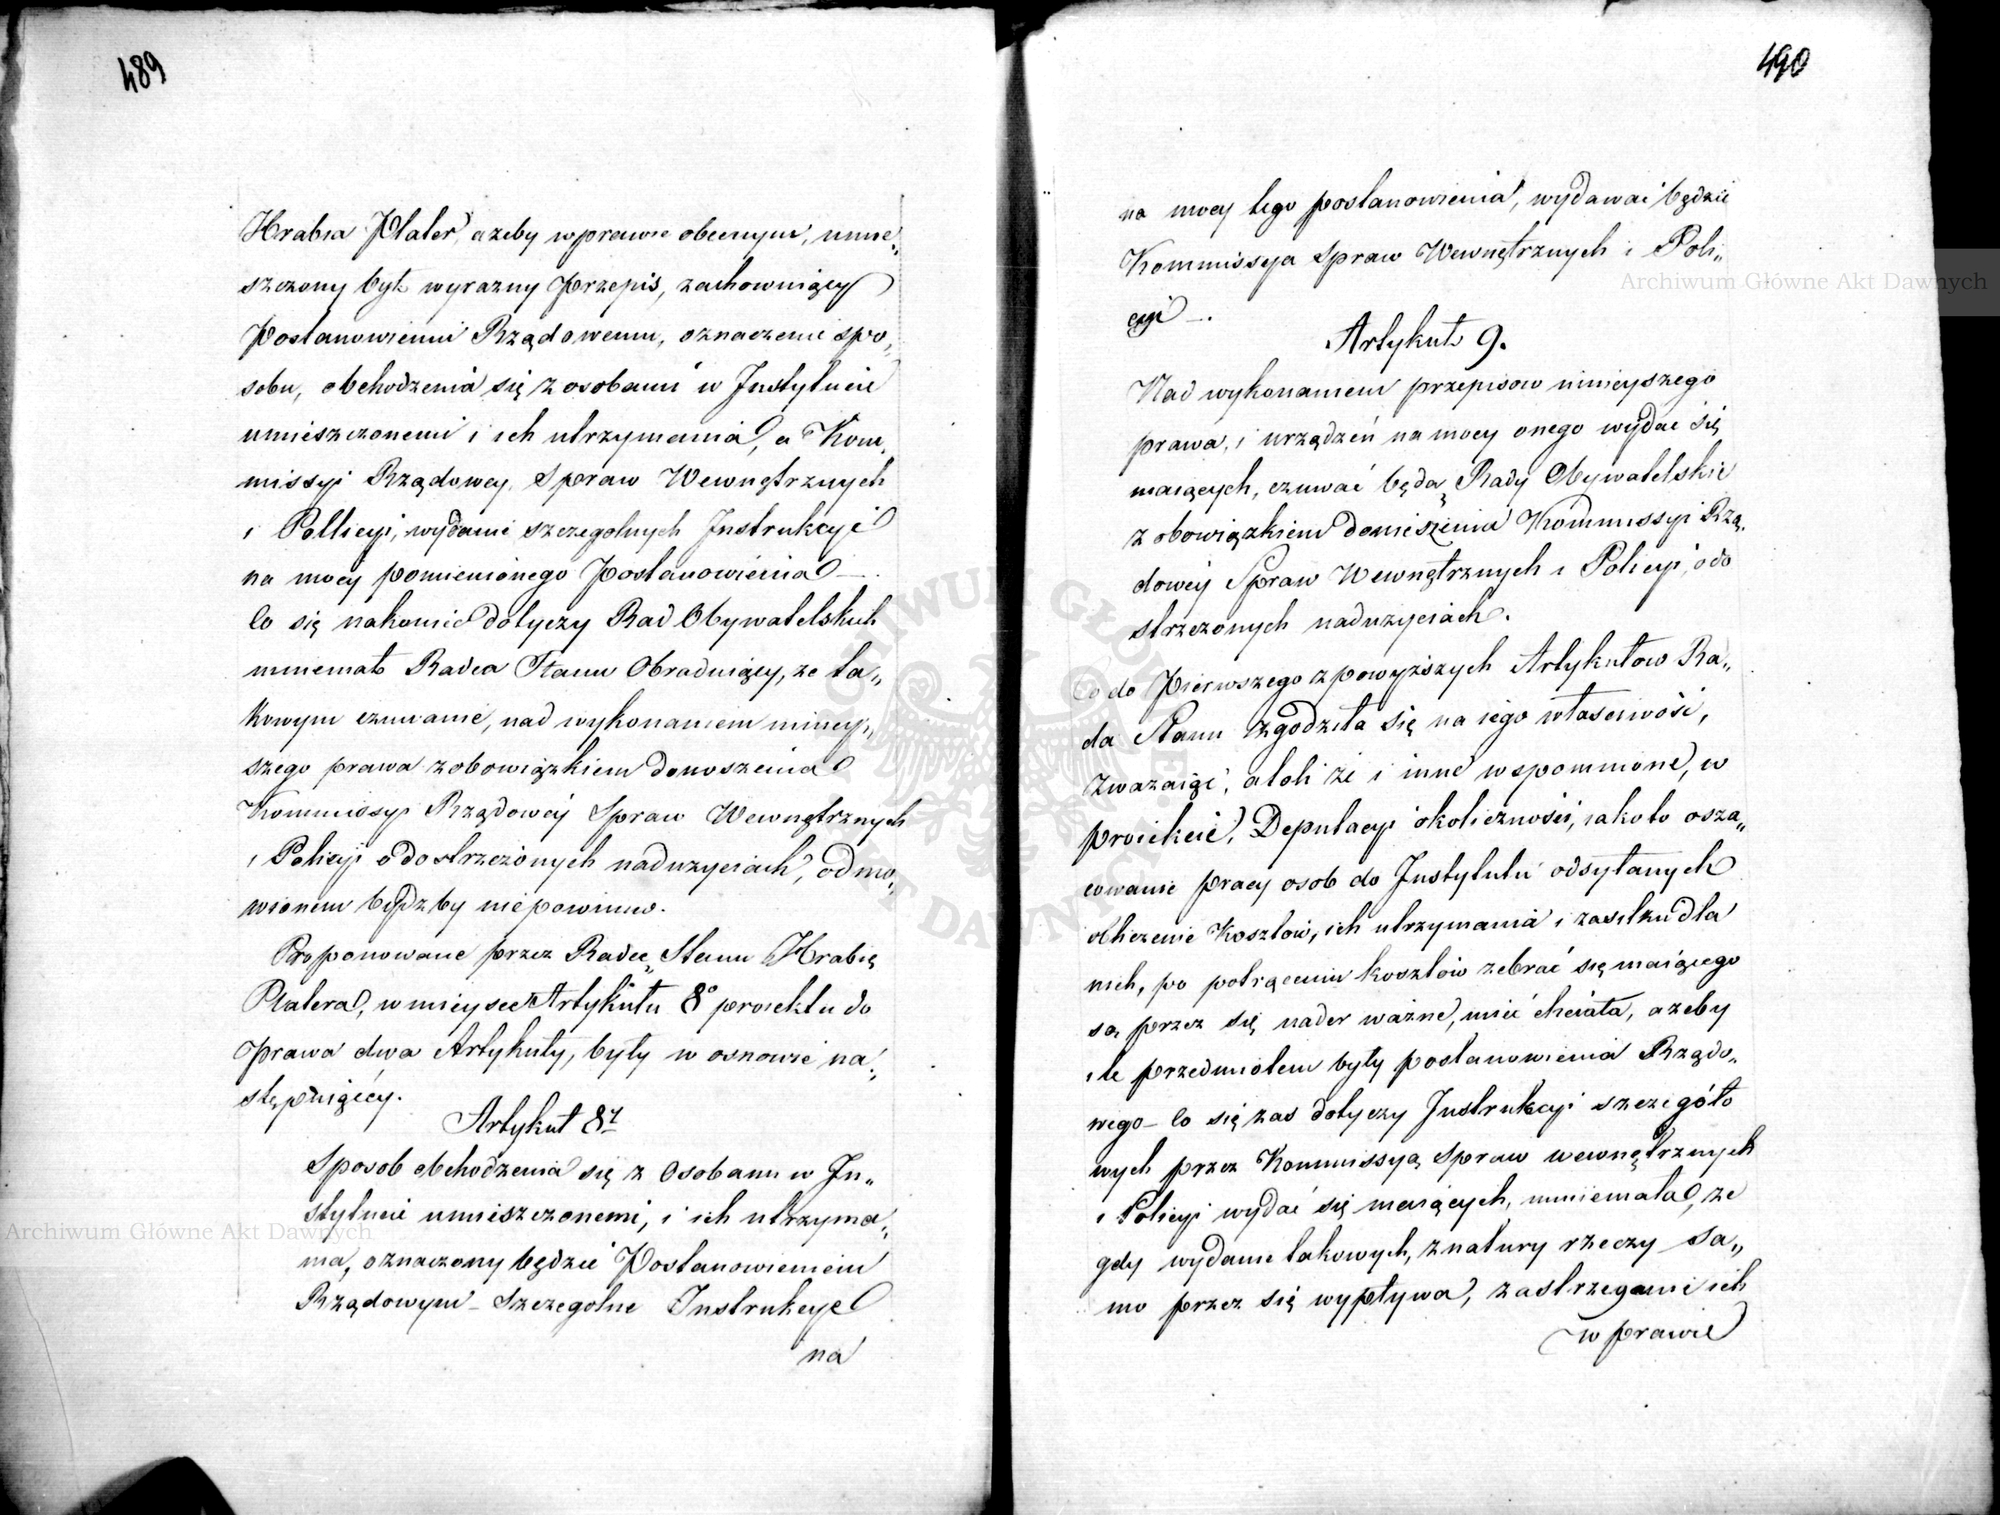 489
Hrabia Plater, ażeby w prawie obecnym, umie„
szczony był wyrazny przepis, zachowuiący
Postanowieniu Rządowemu, oznaczenie spo„
sobu, obchodzenia się z osobami w Instytucie
umieszczonemi i ich utrzymania, a Kom„
missyi Rządowey, Spraw Wewnętrznych
i Pollicyi, wydanie szczegolnych Instrukcyi
na mocy pomienionego Postanowienia —.
Co się nakoniec dotyczy Rad Obywatelskich
mniemał Radca Stanu Obraduiący, że ta„
kowym czuwanie, nad wykonaniem ninieý„
szego prawa z obowiązkiem donoszenia
Kommissyi Rządowéy Spraw Wewnętrznych
i Policyi o dostrzeżonych nadużyciach, odmo„
wionem bydź by niepowinno.
Proponowane przez Radcę Stanu Hrabię
Platera, w mieysce Artykułu 8° proiektu do
prawa dwa Artykuły, były w osnowie na„
stępuiącey.
Artykuł 8y
Sposob obchodzenia się z Osobami w In„
stytucie umieszczonemi, i ich utrzyma„
nia, oznaczony będzie Postanowieniem
Rządowym — Szczegolne Instrukcye
na
490
na mocy tego postanowienia, wydawać będzie
Kommissya Spraw Wewnętrznych i Poli„
cyi —.
Artykuł 9.
Nad wykonaniem przepisow ninieyszego
prawa, i urządzeń na mocy onego wydać się
maiących, czuwać będą Rady Obywatelskie
z obowiązkiem doniesienia Kommissyi Rzą„
dowéy Spraw Wewnętrznych i Policyi, o do
strzezonych naduzyciach.
Co do Pierwszego z powyższych Artykułow Ra„
da Stanu zgodziła się na iego własciwość,
zważaiąc, atoli że i inne wspomnione, w
proiekcie, Deputacyi okoliczności, iako to osza„
cowanie pracy osob do Instytutu odsyłanych
obliczenie Kosztów, ich utrzymania i zasiłku dla
nich, po potrąceniu kosztów zebrać się maiącego
są przez się nader ważne, mieć chciała, ażeby
i te przedmiotem były postanowienia Rządo„
wego — Co się zas dotyczy Instrukcyi szczegóło
wych przez Kommissyą Spraw wewnętrznych
i Policyi wydać się maiących, mniemała, ze
gdy wydanie takowych, z natury rzeczy sa„
mo przez się wypływa, zastrzeganie ich
w prawie
Archiwum Główne Akt Dawnych
Archiwum Główne Akt Dawnych
ARCHIWUM GŁÓWNE AKT DAWNYCH